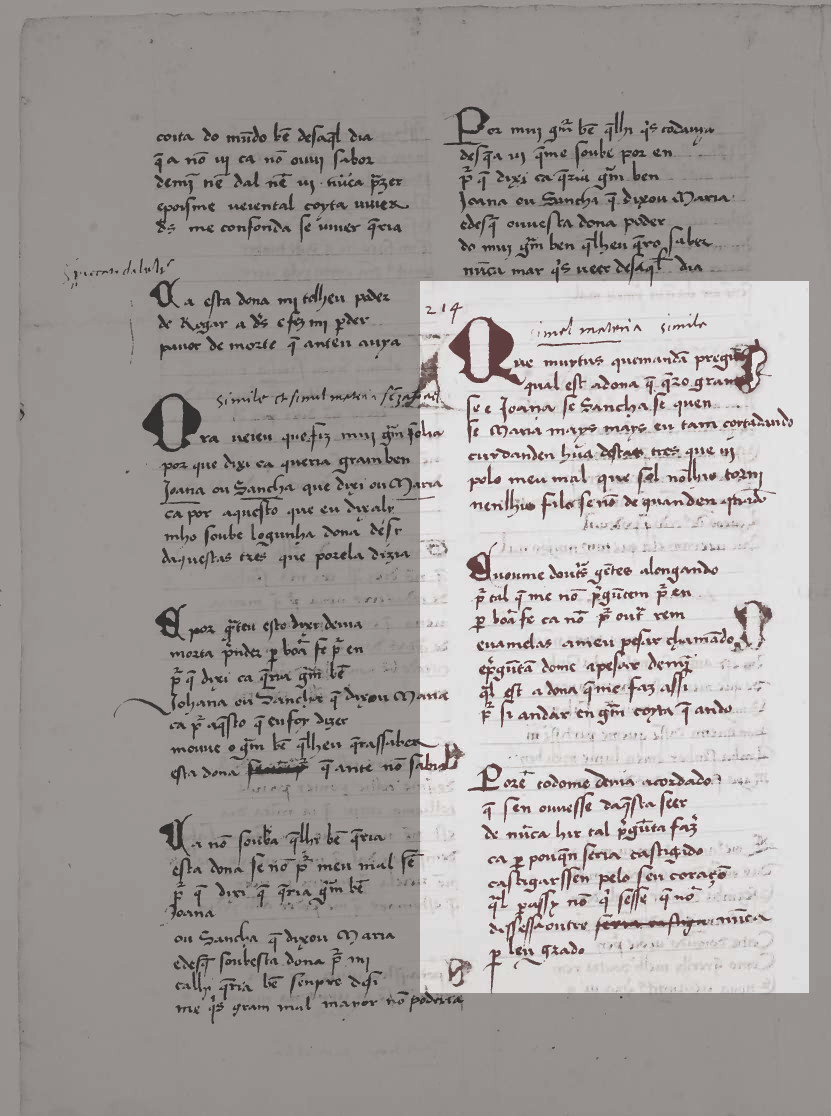 coita do mũdo bẽ desaq̃l dia
q̃ a nõ vj ca nõ ouuj sabor
demj̃ nẽ dal nẽ vj nũca p̃zer
epoisme ueiental coyta uiuer
ds̃ me confonda se uiuer q̃ria
Ca esta dona mj tolheu poder
de Rogar a ds̃ e fez mj p̃der
pauor de morte q̃ anteu auya
Ora ueieu que fiz muj grã folia
por que dixi ca queria gram ben
Joana ou Sancha que dixi ou Maria
ca por aquesto que eu dixaly
mho soube logunha dona desy
daquestas tres que porela dizia
E por q̃nteu esto dixi deuia
morta p̃nder p boã fe p̃ en
p̃ q̃ dixi ca q̃ria grã bẽ
Johana ou Sancha q̃ dixou Maria
ca p̃ aq̃sto q̃ eu foy dizer
mouue o grã bẽ q̃lheu q̃ra ssaber
esta dona q̃ ante nõ sabia
Ca nõ soubera q̃lhi bẽ q̃ria
esta dona se nõ p̃ meu mal sẽ
p̃ q̃ dixi q̃ q̃ria grã bẽ
Joana
ou Sancha q̃ dixou Maria
edesq̃ soubesta dona p̃ mj
calhi q̃ria bẽ senpre desi
me q̃s gram mal mayor nõ poderia
Por muj grã bẽ q̃lhi q̃s todauya
desq̃a vi q̃me soube por en
p̃ q̃ dixi ca q̃ria grã ben
Joana ou Sancha q̃ dixou Maria
edesq̃ ouuesta dona poder
do muj grã ben q̃lheu q̃ro saber
nũca mar q̃s ueer desaq̃l dia
214
simel materia simile
Que muytus quemandã preguntar
qual est adona q̃ q̃ro gram
se e Joana se Sancha se quen
se Maria mays mays eu tam coytadando
cuydanden hũa destas tres que uj
polo meu mal que sol nõlhis torni
nenlhis falo se nõ de quanden quãdo
Euoume doutš gẽtes alongando
p̃ tal q̃ me nõ p̃gũtem p̃ en
p boã fe ca nõ p̃ out̃ rem
euamelas ameu pesar chamãdo
ep̃gũtã dome apesar demj̃
q̃l est a dona q̃ me faz assi
p̃ si andar en grã coyta q̃ ando
Porẽ todome deuia acordado
q̃ sen ouuesse daq̃sta seer
de nũca hir tal p̃gũta faz̃
ca p pouq̃n seria castigado
castigarssen pelo seu coraçõ
q̃l p assy nõ q̃ sesse q̃ nõ
dissessoutre nũca
p leu grado